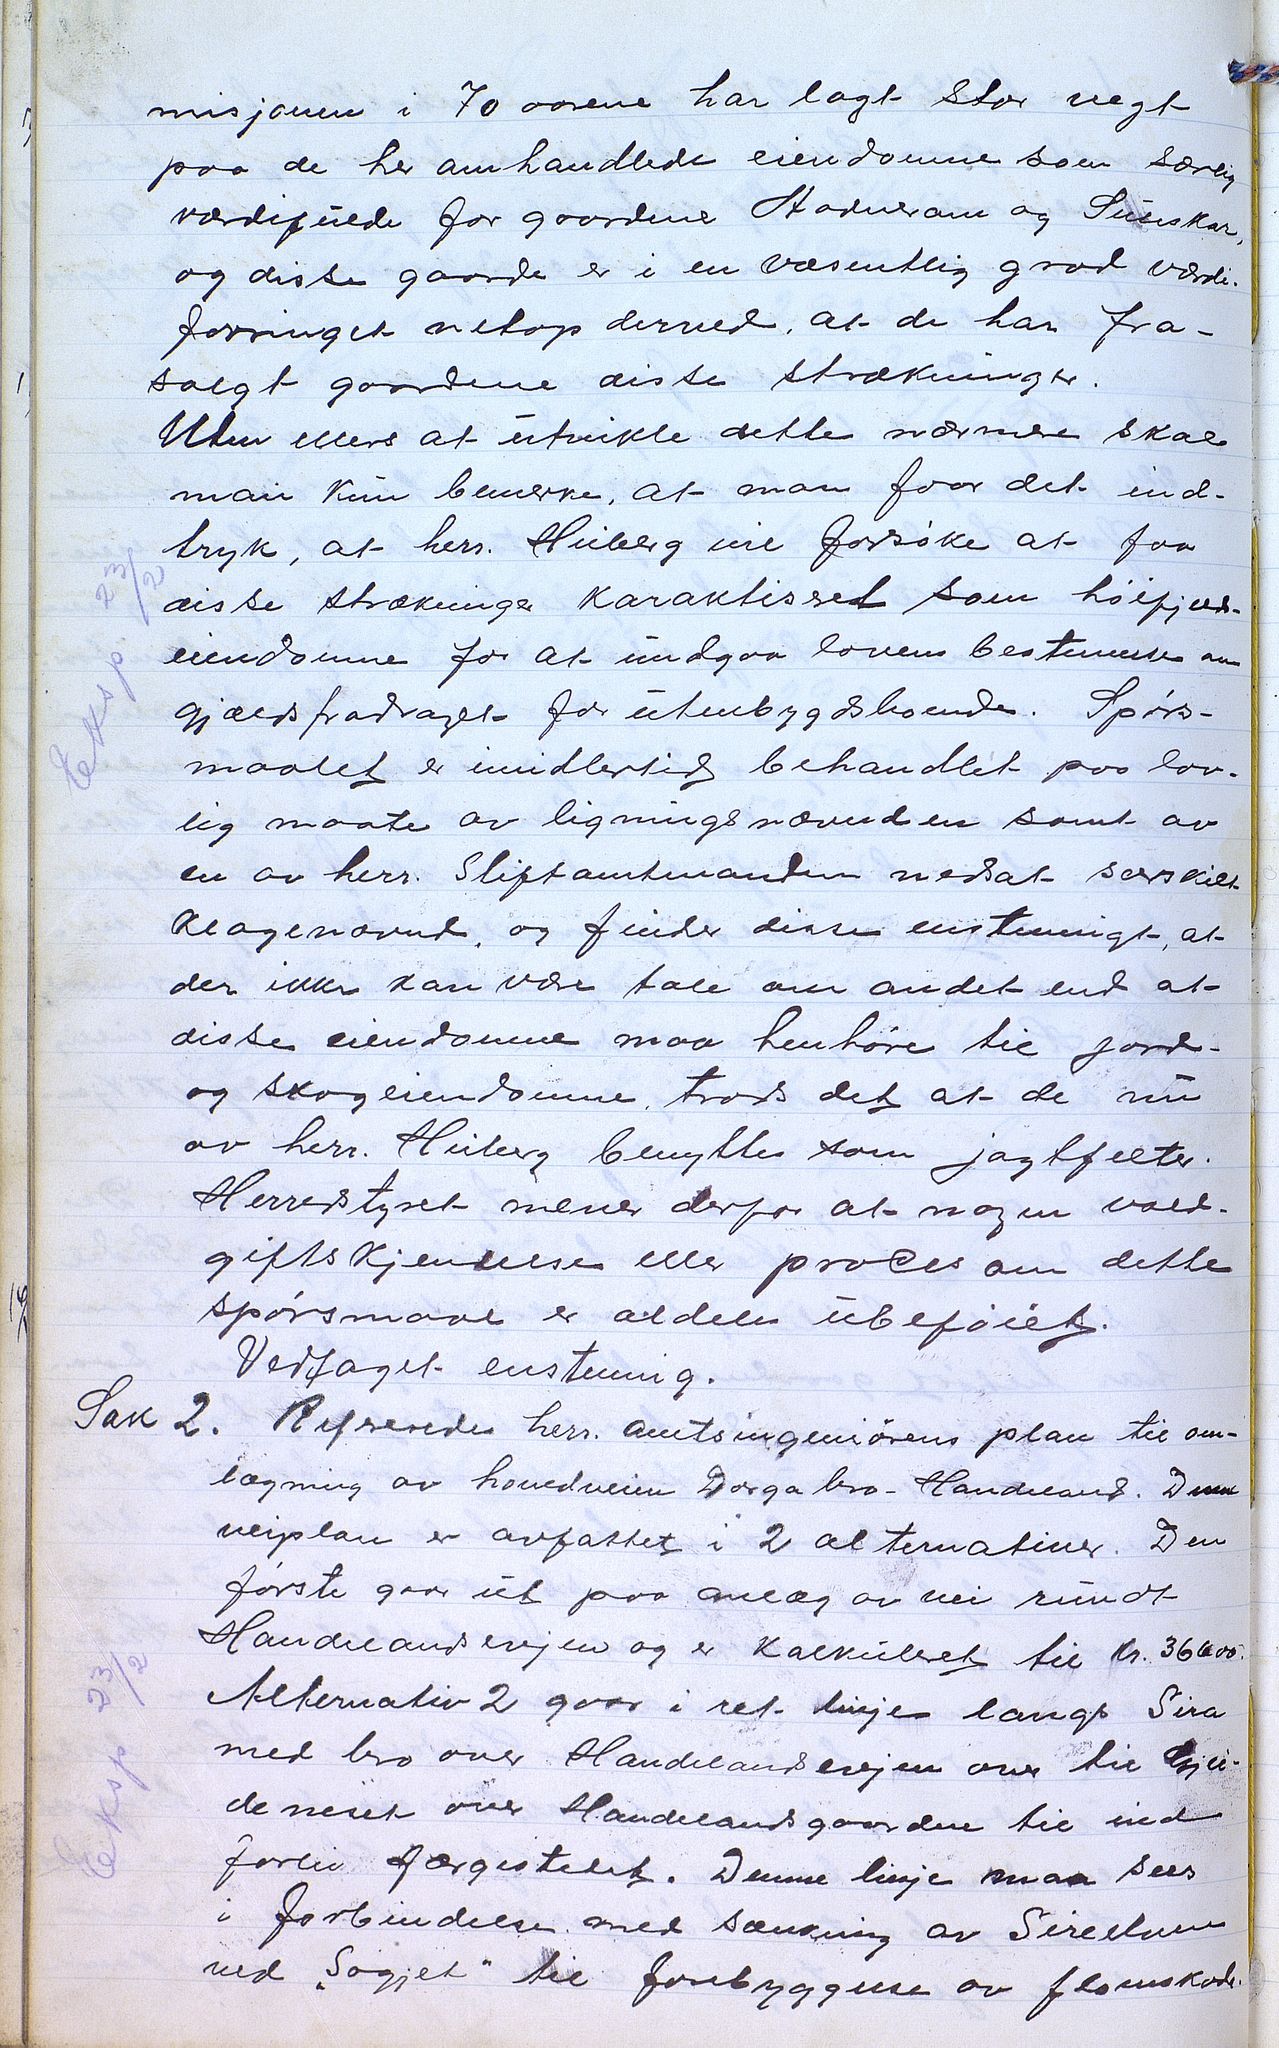 misjonen i 70 aarene har lagt stor vegt
paa de her omhandlede eiendomme som særlig
værdifulde for gaardene Hadneram og Suleskar,
og disse gaarde er i en væsentlig grad værdi-
forringet netop derved, at de har fra-
solgt gaardene disse strækninger.
Uten ellers at utvikle dette nærmere skal
man kun bemerke, at man faar det ind-
tryk, at herr. Hiiberg vil forsøke at faa
disse strækninger karaktisret som høifjelds-
eiendomme for at undgaa lovens bestemmelse om
gjældsfradraget for utenbygdsboende. Spørs-
maalet er imidlertid behandlet paa lov-
lig maate av ligningsnævnden samt av
en av herr. Stiftamtmanden nedsat særskilt
klagenævnd, og finder disse enstemmigt, at
der ikke kan være tale om andet end at
disse eiendomme maa henhøre til jord-
og skogeiendomme, trods det at de nu
av herr. Hiiberg benyttes som jagtfelter.
Herredstyret mener derfor at nogen vold-
giftskjendelse eller proces om dette
spørsmaal er aldeles ubeføiet.
Vedtaget enstemmig.
Sak 2. Refereredes herr. amtsingeniørens plan til om-
lægning av hovedveien Dorga bro - Handeland. Denne
veiplan er avfattet i 2 alternativer. Den
første gaar ut paa anlæg av vei rundt
Handelandsevjen og er kalkuleret til kr. 36600.
Alternativ 2 gaar i ret linje langs Sira
med bro over Handelandsevjen over til
deneset over Handelandsgaardene til ind
forbi færgestedet. Denne linje maa sees
i forbindelse med sænkning av Sireelven
ved "Sogjet" til forebyggelse av flomskade.
Eksp 23/2
Eksp 23/2